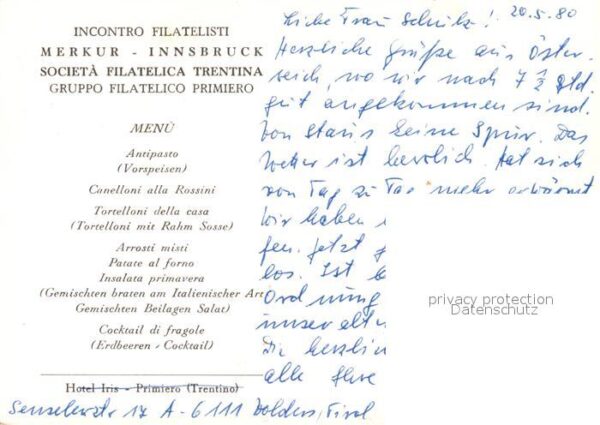 INCONTRO FILATELISTI
MERKUR - INNSBRUCK
SOCIETÀ FILATELICA TRENTINA
GRUPPO FILATELICO PRIMIERO
MENÜ
Antipasto
(Vorspeisen)
Canelloni alla Rossini
Tortelloni della casa
(Tortelloni mit Rahm Sosse)
Arrosti misti
Patate al forno
Insalata primavera
(Gemischten braten am Italienischer Art
Gemischten Beilagen Salat)
Cocktail di fragole
(Erdbeeren - Cocktail)
Hotel Iris - Primiero (Trentino)
20.5.80
Liebe Frau Schulz!
Herzliche Grüße aus Öster-
reich, wo wir nach 7 ½ Std.
gut angekommen sind.
Von Staus keine Spur. Das
Wetter ist herrlich. Hat sich
von Tag zu Tag mehr erwärmt
Wir haben
fen. Jetzt g
los. Ist
Ordnung
unser alter
Die herzlic
alle Ihre
A-6111 Volders, Tirol
privacy protection
Datenschutz